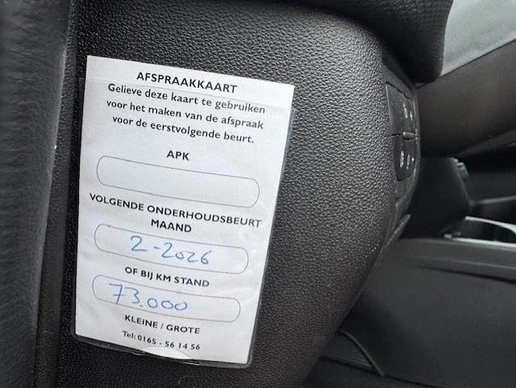 AFSPRAAKKAART
Gelieve deze kaart te gebruiken
voor het maken van de afspraak
voor de eerstvolgende beurt.
APK
VOLGENDE ONDERHOUDSBEURT
MAAND
2-2026
OF BIJ KM STAND
73.000
KLEINE / GROTE
Tel: 0165 - 56 14 56